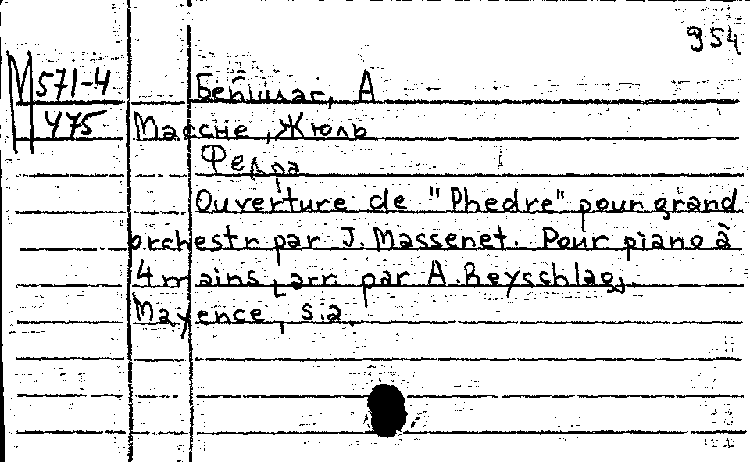 954
M 571-4
475
Бейшлаг, А
Массне, Жюль
Федра
Ouverture de "Phedre" pour grand
orchestr par J. Massenet. Pour piano à
4 mains, arr par A. Beyschlag.
Mayence, s.a.